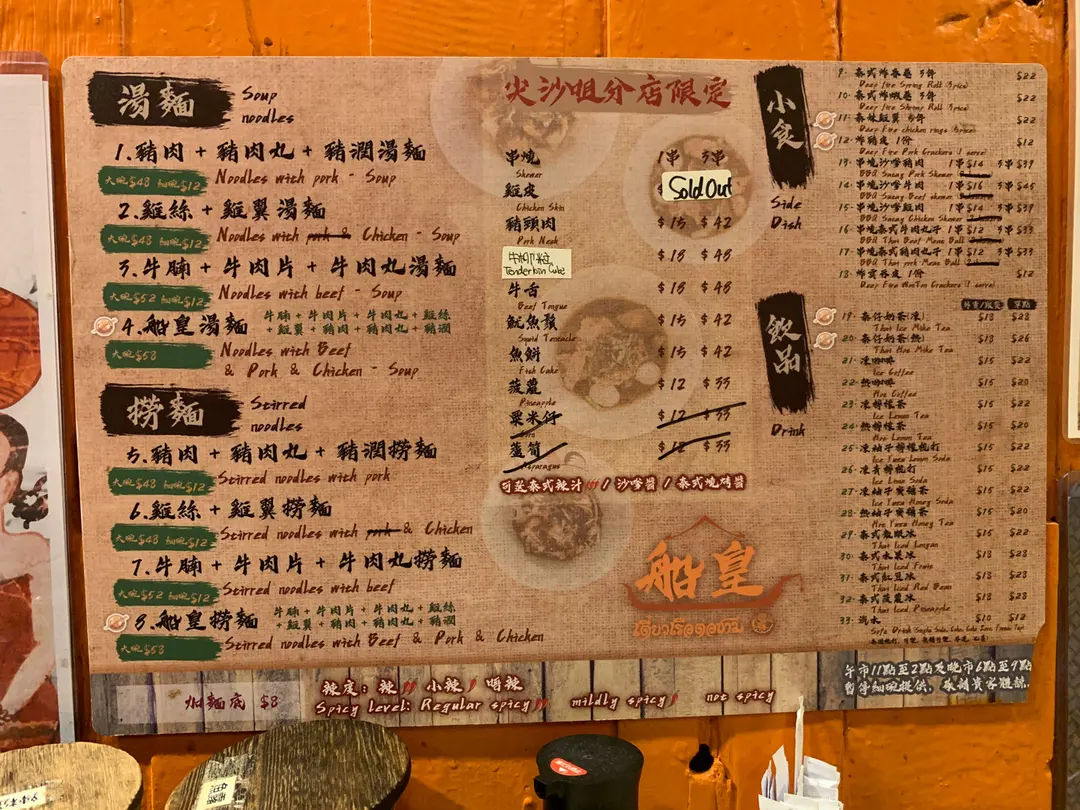 湯麵
Soup
noodles
1.豬肉 + 豬肉丸 + 豬潤湯麵
大碗$48 細碗$12
Noodles with pork - Soup
2.雞絲 + 雞翼湯麵
大碗$48 細碗$12
Noodles with pork & Chicken - Soup
3.牛腩 + 牛肉片 + 牛肉丸湯麵
大碗$52 細碗$12
Noodles with beef - Soup
4.船皇湯麵
牛腩 + 牛肉片 + 牛肉丸 + 雞絲
+ 雞翼 + 豬肉 + 豬肉丸 + 豬潤
大碗$58
Noodles with Beef
& Pork & Chicken - Soup
撈麵
Stirred
noodles
5.豬肉 + 豬肉丸 + 豬潤撈麵
大碗$48 細碗$12
Stirred noodles with pork
6.雞絲 + 雞翼撈麵
大碗$48 細碗$12
Stirred noodles with pork & Chicken
7.牛腩 + 牛肉片 + 牛肉丸撈麵
大碗$52 細碗$12
Stirred noodles with beef
8.船皇撈麵
牛腩 + 牛肉片 + 牛肉丸 + 雞絲
+ 雞翼 + 豬肉 + 豬肉丸 + 豬潤
大碗$58
Stirred noodles with Beef & Pork & Chicken
尖沙咀分店限定
串燒 1串 3串
Skewer
雞皮 Sold Out
Chicken Skin
豬頸肉 $15 $42
Pork Neck
牛柳粒 $18 $48
Tenderloin Cube
牛舌 $18 $48
Beef Tongue
魷魚鬚 $15 $42
Squid Tentacle
魚餅 $15 $42
Fish Cake
菠蘿 $12 $33
Pineapple
粟米仔 $12 $33
蘆筍 $12 $33
Asparagus
可選泰式辣汁 / 沙嗲醬 / 泰式燒烤醬
船皇
小食
Side
Dish
9. 泰式炸春卷 3件 $22
Deep Fire Spring Roll (3pics)
10. 泰式炸蝦卷 3件 $22
Deep Fire Shrimp Roll (3pics)
11. 泰妹雞翼 5件 $22
12. 炸豬皮 1份 $12
Deep Fire Pork Crackers (1 serve)
13. 串燒沙嗲豬肉 1串$14 3串$39
BBQ Satay Pork Skewer
14. 串燒沙嗲牛肉 1串$16 3串$45
BBQ Satay Beef Skewer
15. 串燒沙嗲雞肉 1串$14 3串$39
BBQ Satay Chicken Skewer
16. 串燒泰式牛肉丸子 1串$12 3串$33
BBQ Thai Beef Meat Ball
17. 串燒泰式豬肉丸子 1串$12 3串$33
BBQ Thai pork Meat Ball
18. 炸雲吞皮 1份 $12
Deep Fire WonTon Crackers (1 serve)
飲品
Drink
單點
19. 泰仔奶茶(凍) $18 $28
Thai Ice Milk Tea
20. 泰仔奶茶(熱) $18 $26
Thai Hot Milk Tea
21. 凍咖啡 $15 $22
Ice Coffee
22. 熱咖啡 $15 $20
Hot Coffee
23. 凍檸檬茶 $15 $22
Ice Lemon Tea
24. 熱檸檬茶 $15 $20
Hot Lemon Tea
25. 凍柚子檸檬梳打 $15 $22
Ice Yuzu Lemon Soda
26. 凍青檸梳打 $15 $22
Ice Lime Soda
27. 凍柚子蜜糖茶 $15 $22
Ice Yuzu Honey Tea
28. 熱柚子蜜糖茶 $15 $20
Hot Yuzu Honey Tea
29. 泰式龍眼冰 $15 $22
Thai Iced Longan
30. 泰式水果冰 $18 $28
Thai Iced Fruit
31. 泰式紅豆冰 $18 $28
Thai Iced Red Bean
32. 泰式菠蘿冰 $18 $28
Thai Iced Pineapple
33. 汽水 $10 $12
午市11點至2點及晚市6點至9點
暫停細碗提供, 敬請貴客體諒.
加麵底 $8
辣度: 辣 小辣 唔辣
Spicy Level: Regular spicy mildly spicy not spicy